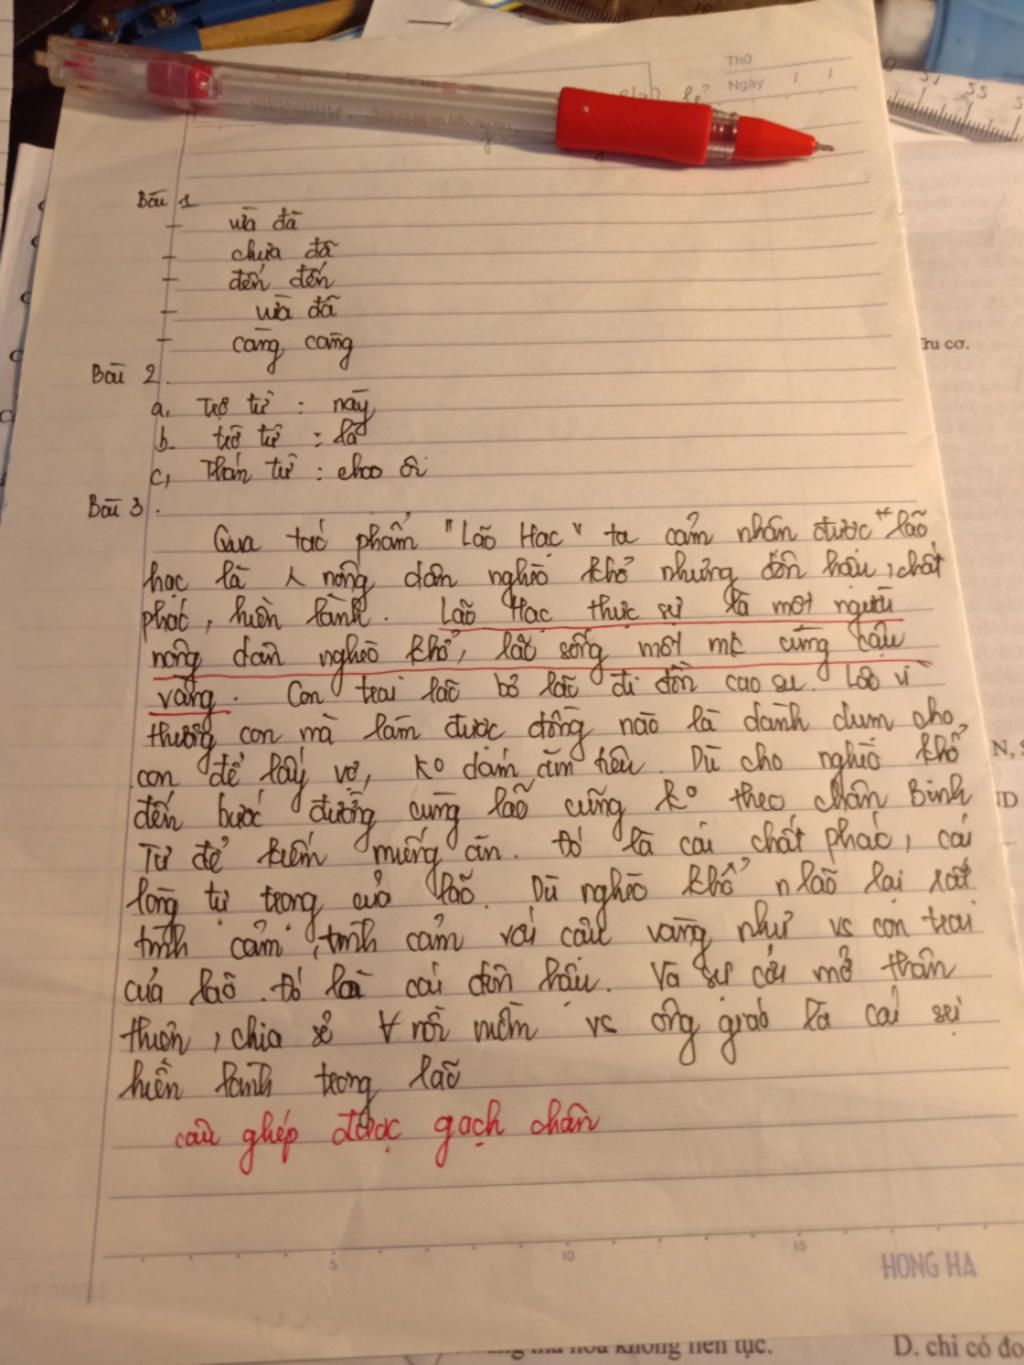 Thứ
Ngày 1 1
Bài 1
+ vừa đã
+ chưa đã
+ đến đến
+ vừa đã
+ càng càng
Bài 2.
a, Trợ từ : này
b. trợ từ : là
c, Thán từ : chao ôi
Bài 3.
Qua tác phẩm "Lão Hạc" ta cảm nhận được "lão
hạc là nông dân nghèo khổ nhưng đôn hậu, chất
phác, hiền lành. Lão Hạc thực sự là một người
nông dân nghèo khổ, lão sống một mk cùng cậu
vàng. Con trai lão bỏ lão đi đồn cao su. Lão vì
thương con mà làm được đồng nào là dành dụm cho
con để lấy vợ, ko dám ăn tiêu. Dù cho nghèo khổ
đến bước đường cùng lão cũng ko theo chân Binh
Tư để kiếm miếng ăn. Đó là cái chất phác, cái
lòng tự trọng của lão. Dù nghèo khổ n lão lại rất
tình cảm, tình cảm với cậu vàng như vs con trai
của lão. Đó là cái đôn hậu. Và sự cởi mở thân
thiện, chia sẻ ∀ nỗi niềm vs ông giáo là cái sự
hiền lành trong lão
câu ghép được gạch chân
5 10 15
HONG HA
Tru cơ.
N, S
ID
không liên tục.
D. chỉ có đo